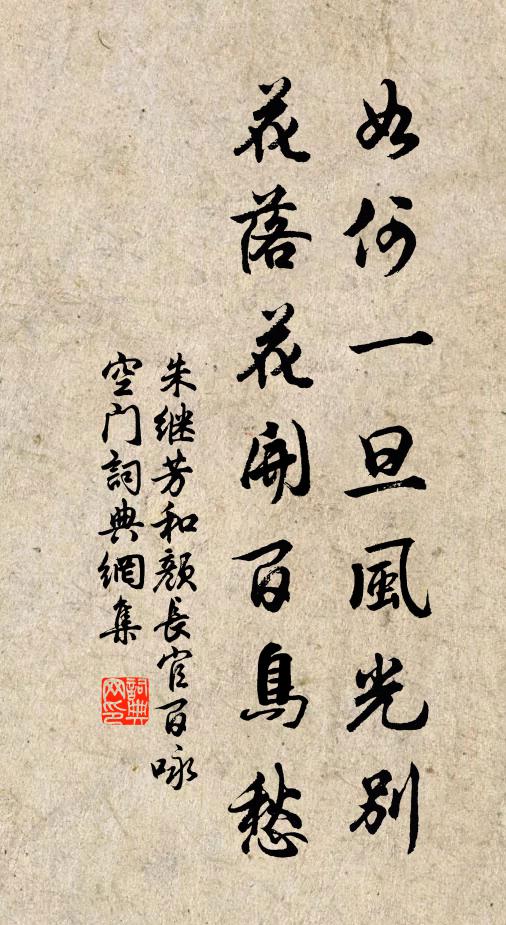 如何一旦風光別
花落花開百鳥愁
朱继芳和顔長官百咏
空门詞典網集
詞典
网印